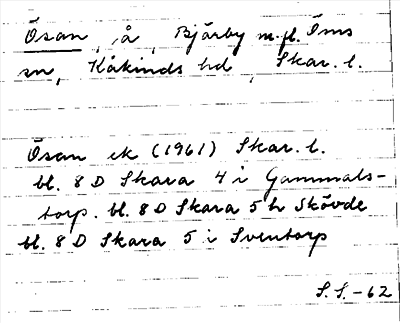 Ösan, å, Bjärby m.fl. Öms
sn, Kåkinds hd, Skar. l.
Ösan ek (1961) Skar. l.
bl. 8 D Skara 4 i Gammals-
torp. bl. 8 D Skara 5 h Skövde
bl. 8 D Skara 5 i Sventorp
S. S. -62